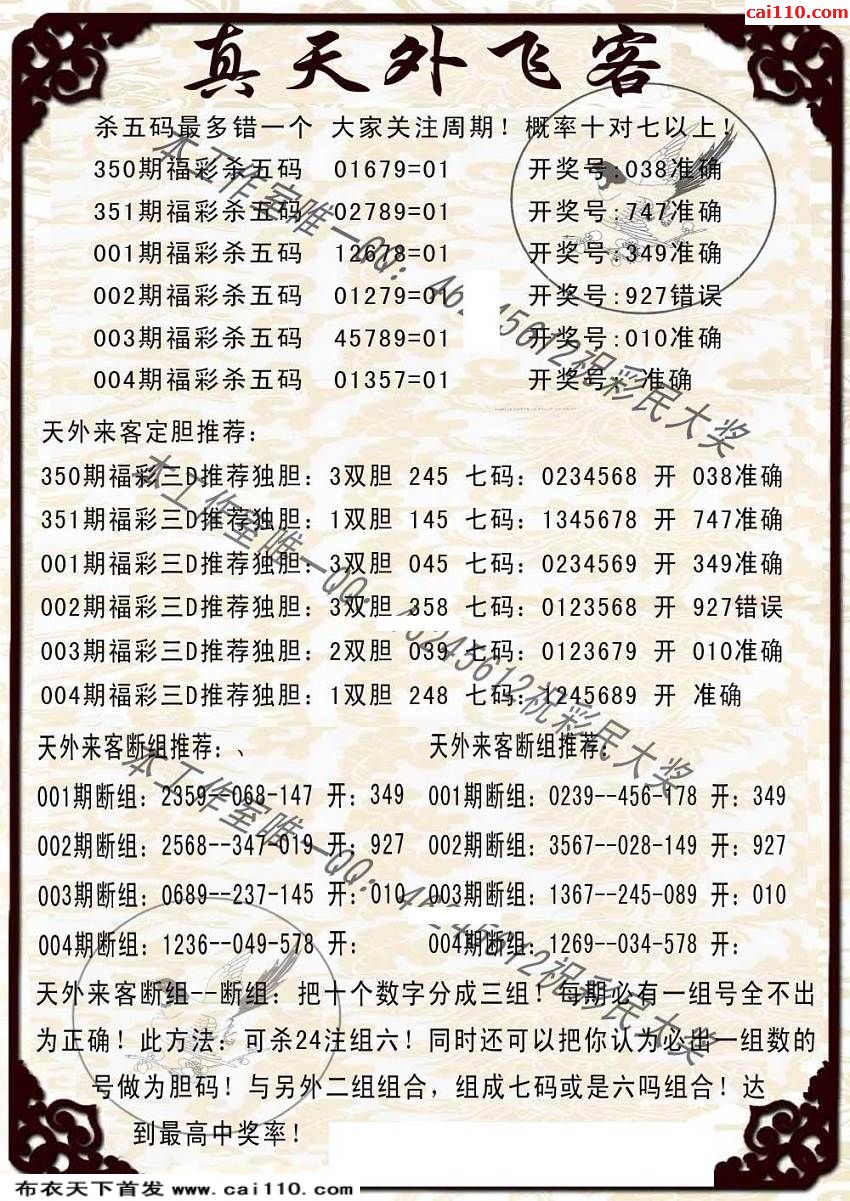 cai110.com
真天外飞客
杀五码最多错一个 大家关注周期！概率十对七以上！
350期福彩杀五码 01679=01 开奖号:038准确
351期福彩杀五码 02789=01 开奖号:747准确
001期福彩杀五码 12678=01 开奖号:349准确
002期福彩杀五码 01279=01 开奖号:927错误
003期福彩杀五码 45789=01 开奖号:010准确
004期福彩杀五码 01357=01 开奖号: 准确
天外来客定胆推荐：
350期福彩三D推荐独胆：3双胆 245 七码：0234568 开 038准确
351期福彩三D推荐独胆：1双胆 145 七码：1345678 开 747准确
001期福彩三D推荐独胆：3双胆 045 七码：0234569 开 349准确
002期福彩三D推荐独胆：3双胆 358 七码：0123568 开 927错误
003期福彩三D推荐独胆：2双胆 039 七码：0123679 开 010准确
004期福彩三D推荐独胆：1双胆 248 七码：1245689 开 准确
天外来客断组推荐：、 天外来客断组推荐：
001期断组：2359--068-147 开：349 001期断组：0239--456-178 开：349
002期断组：2568--347-019 开：927 002期断组：3567--028-149 开：927
003期断组：0689--237-145 开：010 003期断组：1367--245-089 开：010
004期断组：1236--049-578 开： 004期断组：1269--034-578 开：
天外来客断组--断组：把十个数字分成三组！每期必有一组号全不出
为正确！此方法：可杀24注组六！同时还可以把你认为必出一组数的
号做为胆码！与另外二组组合，组成七码或是六吗组合！达
到最高中奖率！
本工作室唯一QQ：46245612祝彩民大奖
本工作室唯一QQ：46245612祝彩民大奖
本工作室唯一QQ：46245612祝彩民大奖
布衣天下首发 www.cai110.com